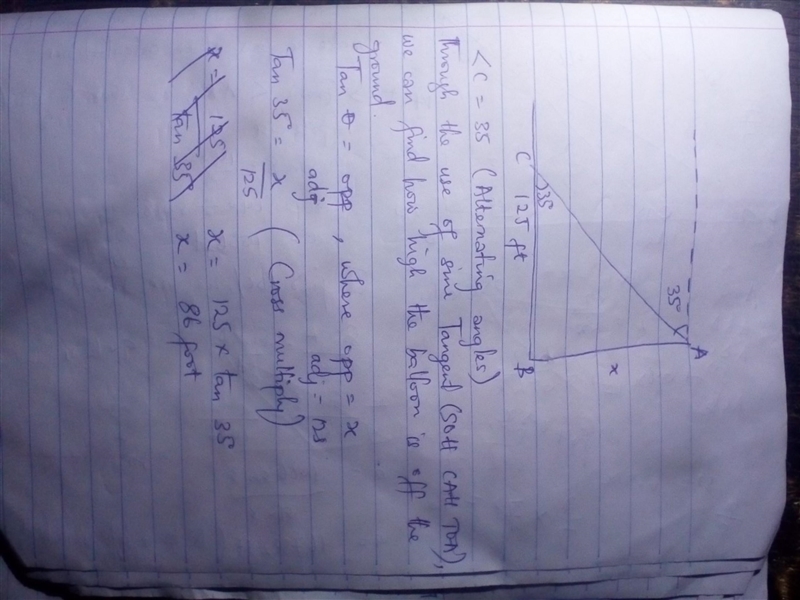 A
35°
x
35
C 125 ft B
<C = 35 (Alternating angles)
through the use of sine Tangent (SOH CAH TOA),
we can find how high the balloon is off the
ground.
Tan θ = opp, where opp = x
adj adj = 125
Tan 35° = x (Cross multiply)
125
x = 125 x = 125 x tan 35
tan 35° x = 86 foot